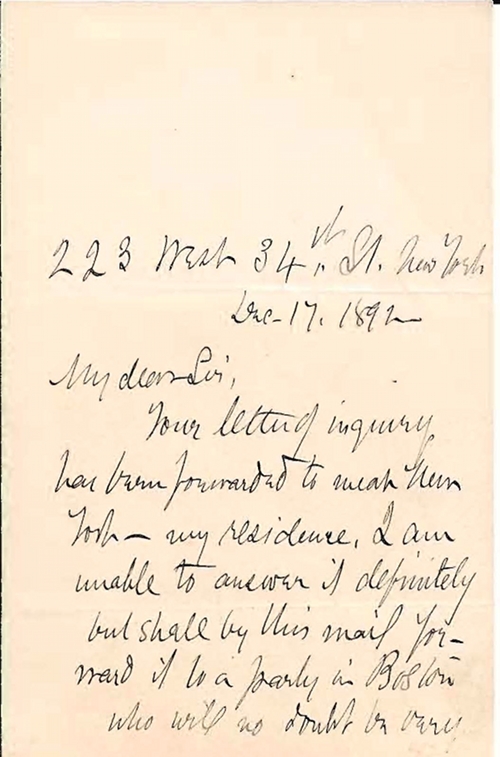 223 West 34th St. New York
Dec. 17. 1892
My dear Sir,
Your letter of inquiry
has been forwarded to me at New
York — my residence. I am
unable to answer it definitely
but shall by this mail for-
ward it to a party in Boston
who will no doubt be very